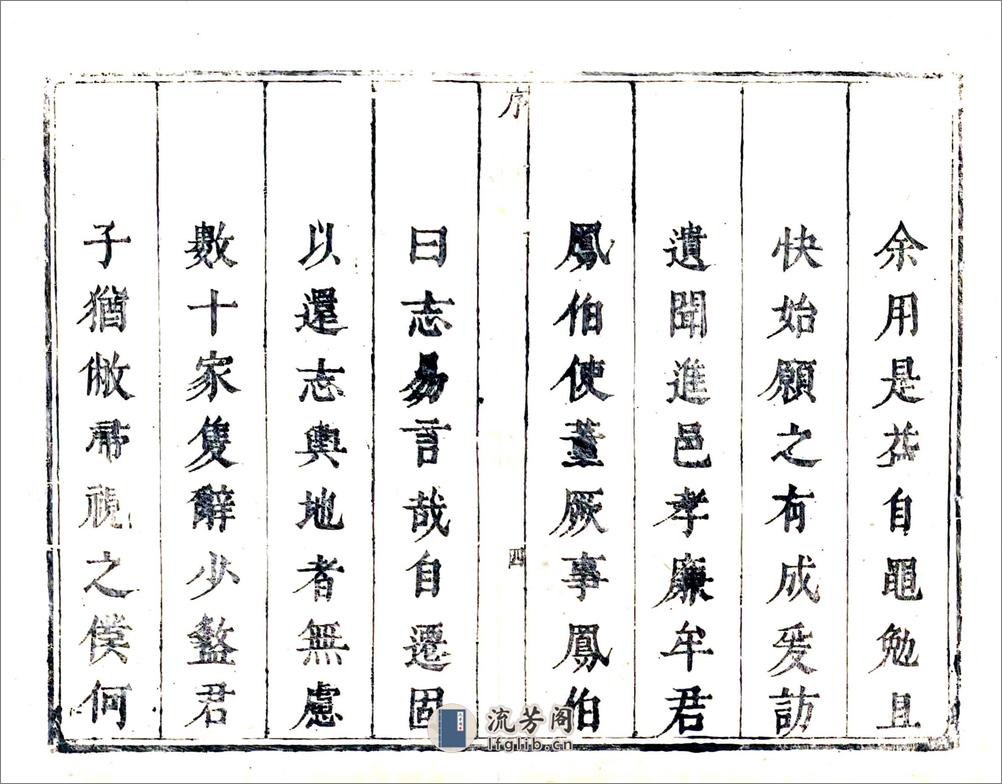 余用是益自黽勉且
快始願之有成爰訪
遺聞進邑孝廉牟君
鳳伯使董厥事鳳伯
序
四
曰志易言哉自遷固
以還志輿地者無慮
數十家隻辭少盭君
子猶敝帚視之僕何
流芳阁
lfglib.cn